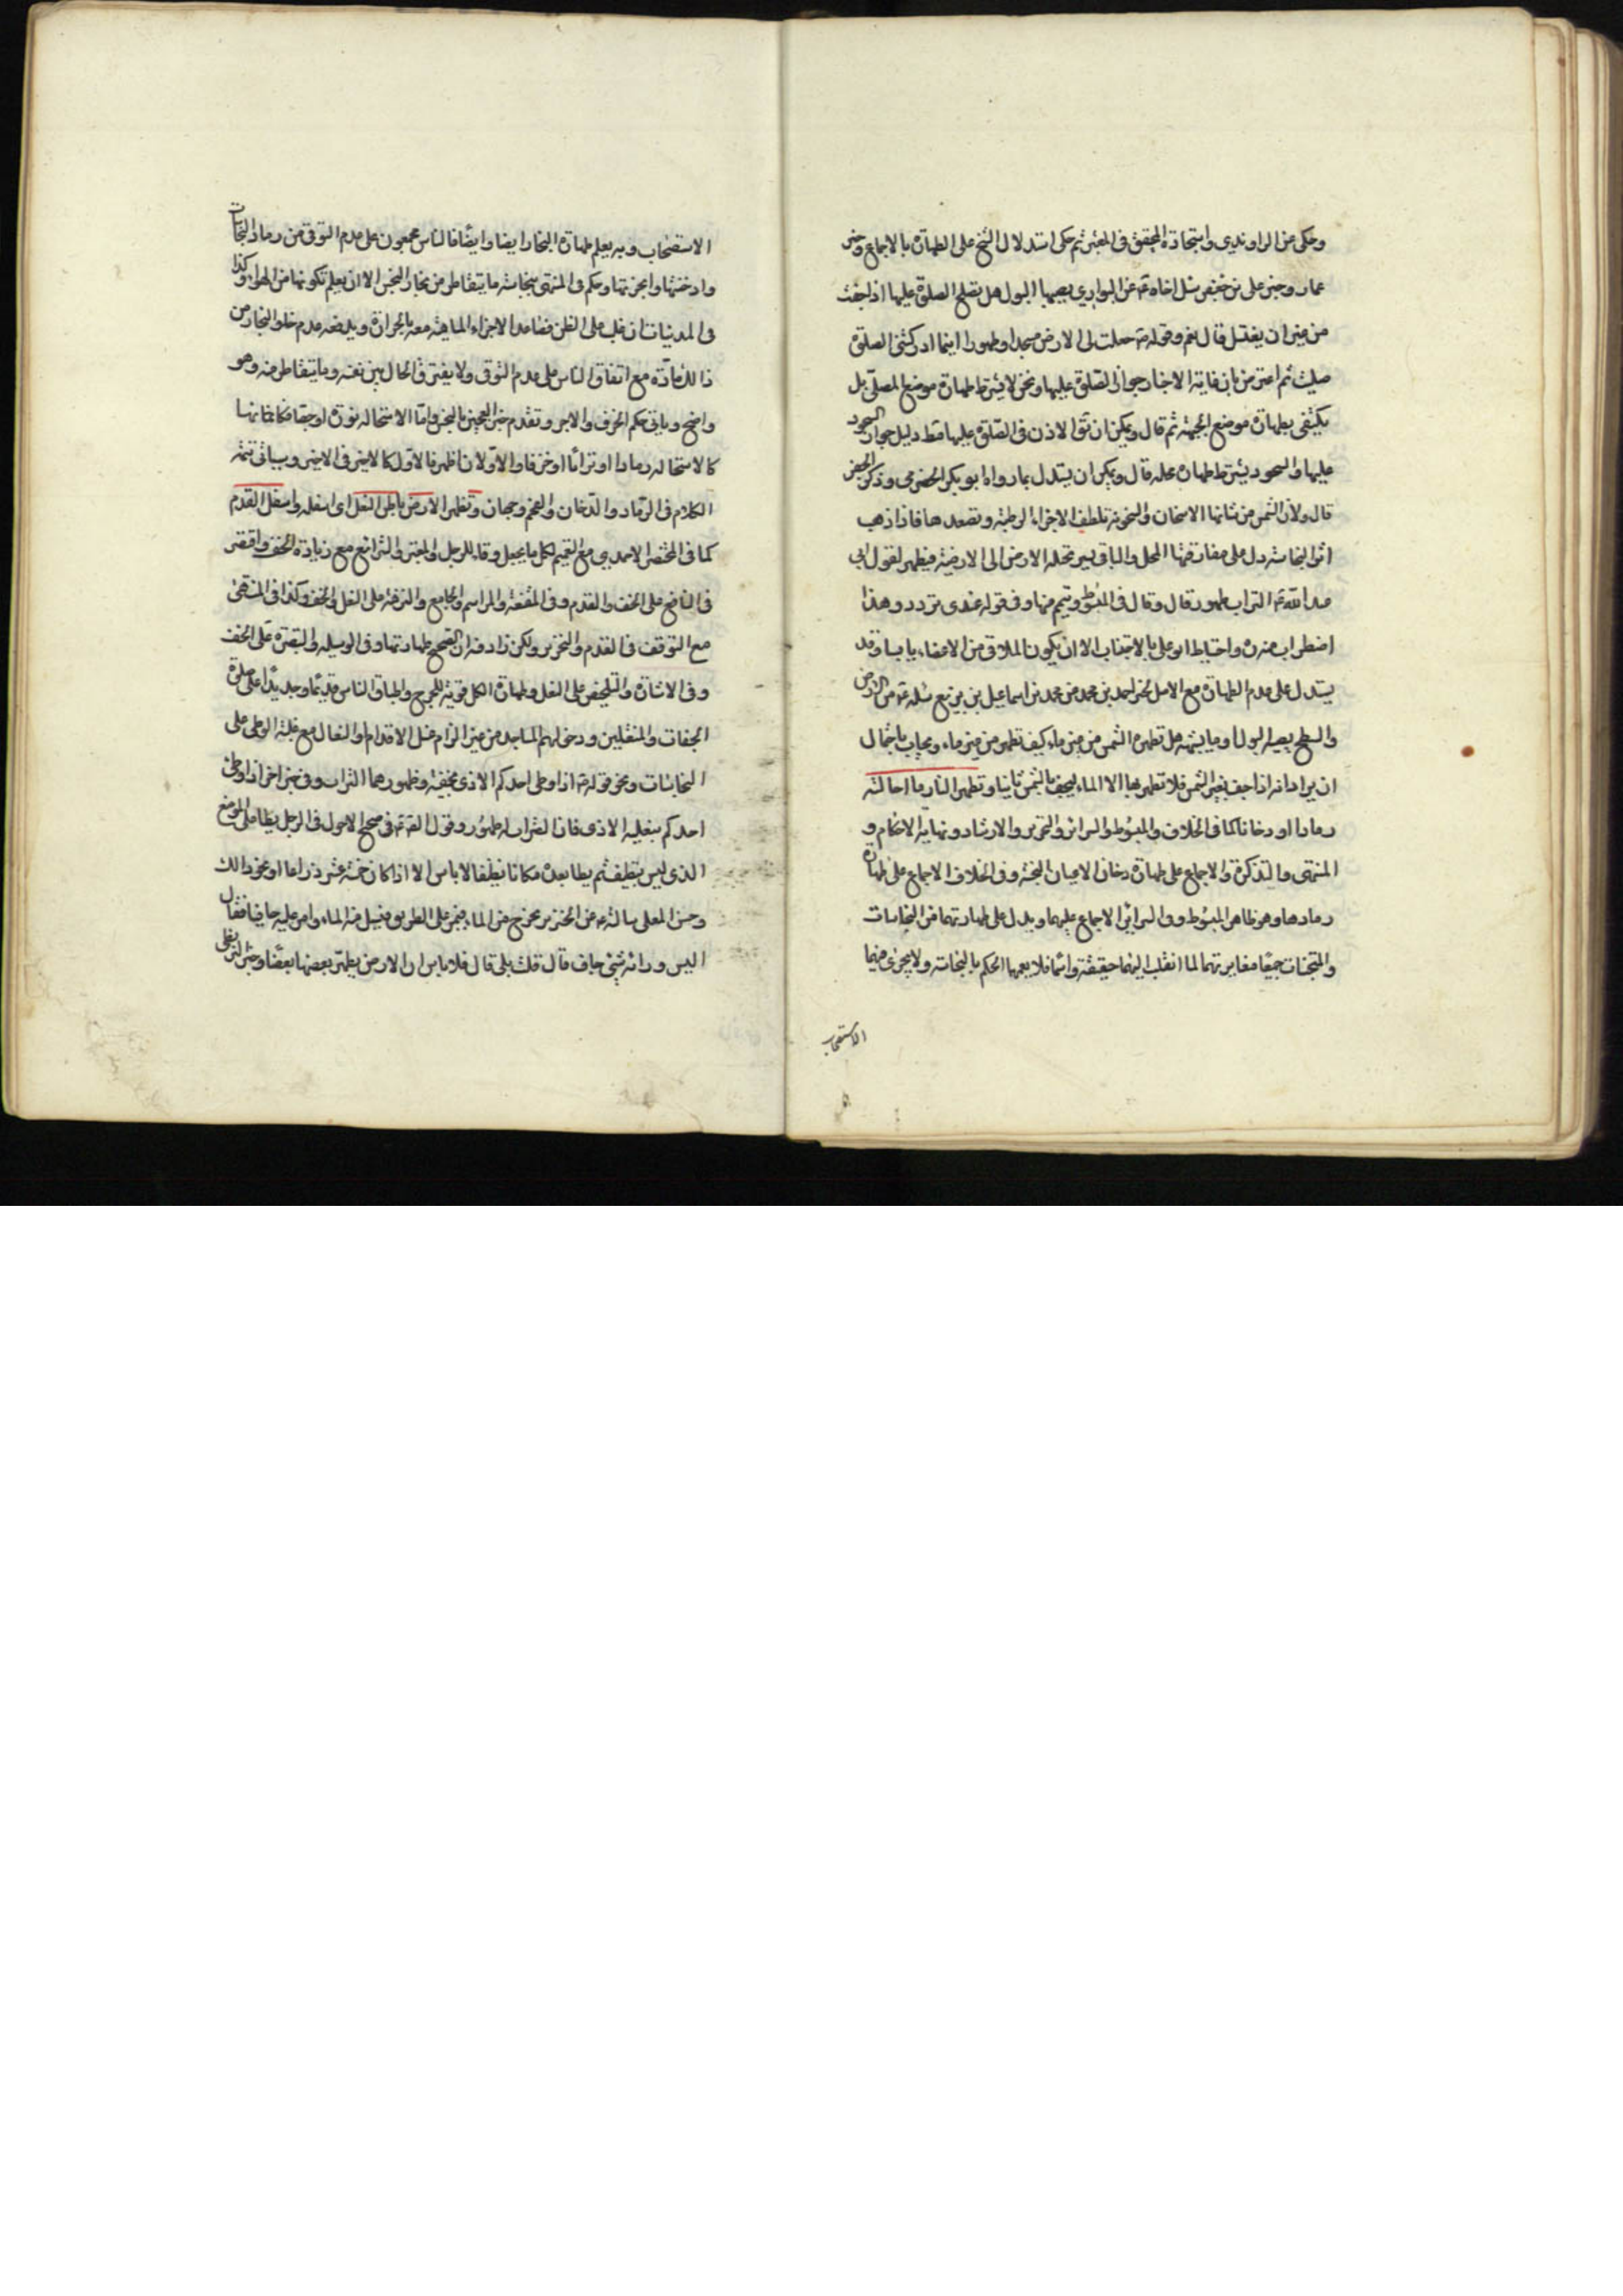 وحكى عن الراوندي واستجاده المحقق في المعتبر ثم حكى استدلال الشيخ على الطهارة بالاجماع وخبر
عمار وخبر على بن جعفر سئل اخاه ع عن البواري يصيبها البول هل يصلح الصلوة عليها اذا جفت
من غير ان يغتسل قال نعم وقوله ص جعلت لى الارض مسجدا وطهورا اينما ادركتنى الصلوة
صليت ثم اعترض بان غاية الاخبار جواز الصلوة عليها ونحن لا نشترط طهارة موضع المصلى بل
نكتفى بطهارة موضع الجبهة ثم قال ويمكن ان نقول الاذن فى الصلوة عليها مط دليل جواز السجود
عليها والسجود يشترط طهارة محله قال ويمكن ان يستدل بما رواه ابو بكر الحضرمى وذكر الخبر
قال ولان الشمس من شانها الاسخان والسخونة تلطف الاجزاء الرطبة وتصعدها فاذا ذهب
اثر النجاسة دل على مفارقتها المحل والباقى يسير تحيله الارض الى الارضية فيطهر لقول ابى
عبد الله ع التراب طهور قال وقال فى المبسوط ويتيمم منها وفى قوله عندى تردد وهذا
اضطراب منه ره واحتياط ابو على بالاجتناب الا ان يكون الملاقى من الاعضاء يابسا وقد
يستدل على عدم الطهارة مع الاصل بخبر احمد بن محمد عن محمد بن اسماعيل بن بزيع سئله ع عن الارض
والسطح يصيبه البول او ما يشبهه هل تطهره الشمس من غير ماء كيف تطهر من غير ماء ويجاب باحتمال
ان يراد انه اذا جف بغير الشمس فلا تطهر بها الا الماء ليجف بالشمس ثانيا وتطهر النار ما احالته
رمادا او دخانا كما فى الخلاف والمبسوط والسرائر والتحرير والارشاد ونهاية الاحكام و
المنتهى والتذكرة والاجماع على طهارة دخان الاعيان النجسة وفى الخلاف الاجماع على طهارة
رمادها وهو ظاهر المبسوط وفى السرائر الاجماع عليهما ويدل على طهارتهما من النجاسات
والمتنجسات جميعا مغايرتهما لما انقلب اليهما حقيقة واسما فلا يعمها الحكم بالنجاسة ولا يجرى فيهما
الاستصحاب
الاستصحاب وبه يعلم طهارة البخار ايضا وايضا فالناس مجمعون على عدم التوقى من رماد النجاسات
وادخنتها وابخرتها وحكم فى المنتهى بنجاسة ما يتقاطر من بخار النجس الا ان يعلم تكونها من الهواء وكذا
فى المدنيات ان غلب على الظن تصاعد الاجزاء المائية معه بالحرارة ويدفعه عدم خلو البخار من
ذالك عادة مع اتفاق الناس على عدم التوقى ولا يفترق الحال بين نفسه وما يتقاطر منه وهو
واضح وياتى حكم الخزف والاجر وتقدم خبز العجين بالنجس واما الاستحالة نورة او جصا فكانها
كالاستحاله رمادا او ترابا او خزفا والاولان اظهر فالاول كالاخير فى الاخير وسياتى تتمة
الكلام فى الرماد والدخان والفحم وحجان وتطهر الارض باطن النعل اى اسفله واسفل القدم
كما فى المختصر الاحمدى مع التعميم لكل ما يجعل وقاء للرجل والمعتبر والشرائع مع زيادة الخف واقتصر
فى النافع على الخف والقدم وفى المقنعة والمراسم والجامع والنزهة على النعل والخف وكذا فى المنتهى
مع التوقف فى القدم والتحرير ولكن زاد فيه ان الصحيح طهارتها وفى الوسيله والتبصرة على الخف
وفى الاشارة والتلخيص على النعل وطهارة الكل قوية للحرج واطباق الناس قديما وجديدا على صلوة
الحفات والمنتعلين ودخولهم المساجد من غير الزام غسل الاقدام والنعال مع غلبة الوطى على
النجاسات ونحو قوله ص اذا وطى احدكم الاذى بخفيه فطهورهما التراب وفى خبر اخر اذا وطئ
احدكم بنعليه الاذى فان التراب له طهور وقول الص ع فى صحيح الاحول فى الرجل يطا على الموضع
الذى ليس بنظيف ثم يطا بعده مكانا نظيفا لا باس الا اذا كان خمسة عشر ذراعا او نحو ذالك
وحسن المعلى سالته ع عن الخنزير يخرج من الماء فيمر على الطريق فيسيل منه الماء وامر عليه حافيا فقال
اليس ورائه شئ جاف قال قلت بلى قال فلا باس ان الارض يطهر بعضها بعضا وخبر